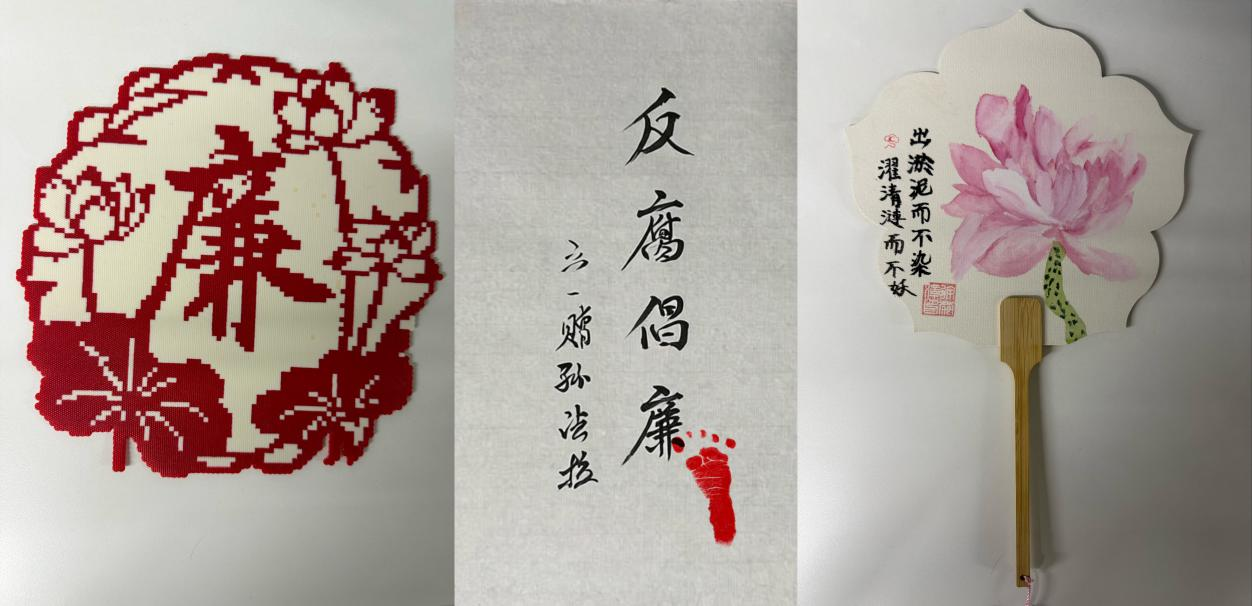 廉
反腐倡廉
六一赠孙法拉
出淤泥而不染
濯清涟而不妖